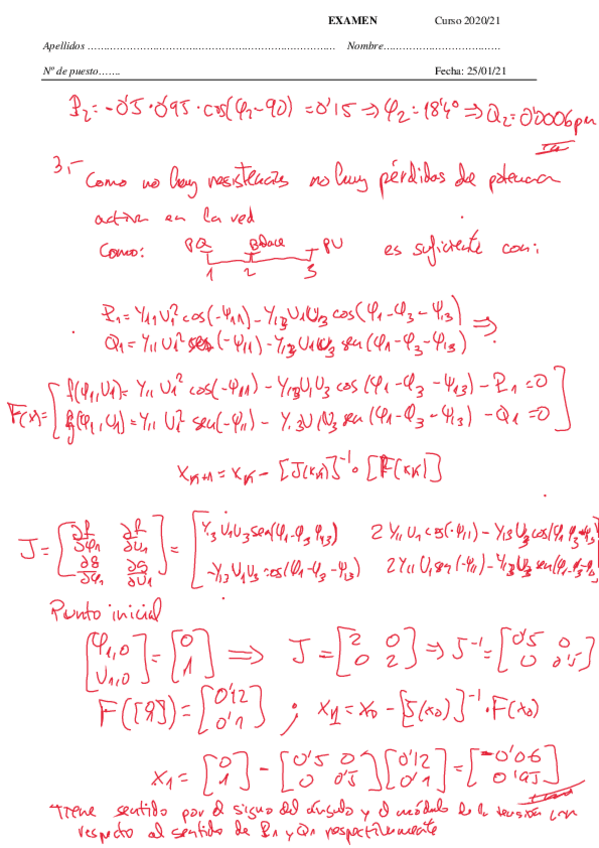 EXAMEN Curso 2020/21
Apellidos ........................................................................ Nombre....................................
Nº de puesto....... Fecha: 25/01/21
P₂ = -0'5·0'95·cos(φ₂-90) = 0'15 ⇒ φ₂ = 18'4° ⇒ Q₂ = 0'0006 pu
3.- Como no hay resistencias no hay pérdidas de potencia
activa en la red
Como: PQ Balance PV es suficiente con:
1 2 3
P₁ = Y₁₁U₁² cos(-φ₁₁) - Y₁₃U₁U₃ cos(φ₁-φ₃-φ₁₃) ⇒
Q₁ = Y₁₁U₁² sen(-φ₁₁) - Y₁₃U₁U₃ sen(φ₁-φ₃-φ₁₃)
F(x) = [f(φ₁,U₁) = Y₁₁U₁² cos(-φ₁₁) - Y₁₃U₁U₃ cos(φ₁-φ₃-φ₁₃) - P₁ = 0
g(φ₁,U₁) = Y₁₁U₁² sen(-φ₁₁) - Y₁₃U₁U₃ sen(φ₁-φ₃-φ₁₃) - Q₁ = 0]
x_{k+1} = x_k - [J(x_k)]⁻¹·[F(x_k)]
J = [∂f/∂φ₁ ∂f/∂U₁; ∂g/∂φ₁ ∂g/∂U₁] = [Y₁₃U₁U₃ sen(φ₁-φ₃ φ₁₃) 2Y₁₁U₁ cos(-φ₁₁) - Y₁₃U₃ cos(φ₁ φ₃-φ₁₃)
-Y₁₃U₁U₃ cos(φ₁-φ₃-φ₁₃) 2Y₁₁U₁ sen(-φ₁₁) - Y₁₃U₃ sen(φ₁-φ₃-φ₁₃)]
Punto inicial
[φ₁,₀; U₁,₀] = [0; 1] ⇒ J = [2 0; 0 2] ⇒ J⁻¹ = [0'5 0; 0 0'5]
F([0; 1]) = [0'12; 0'1] ; x₁ = x₀ - [J(x₀)]⁻¹·F(x₀)
x₁ = [0; 1] - [0'5 0; 0 0'5][0'12; 0'1] = [-0'06; 0'95]
*Tiene sentido por el signo del ángulo y el módulo de la tensión con
respecto al sentido de P₁ y Q₁ respectivamente